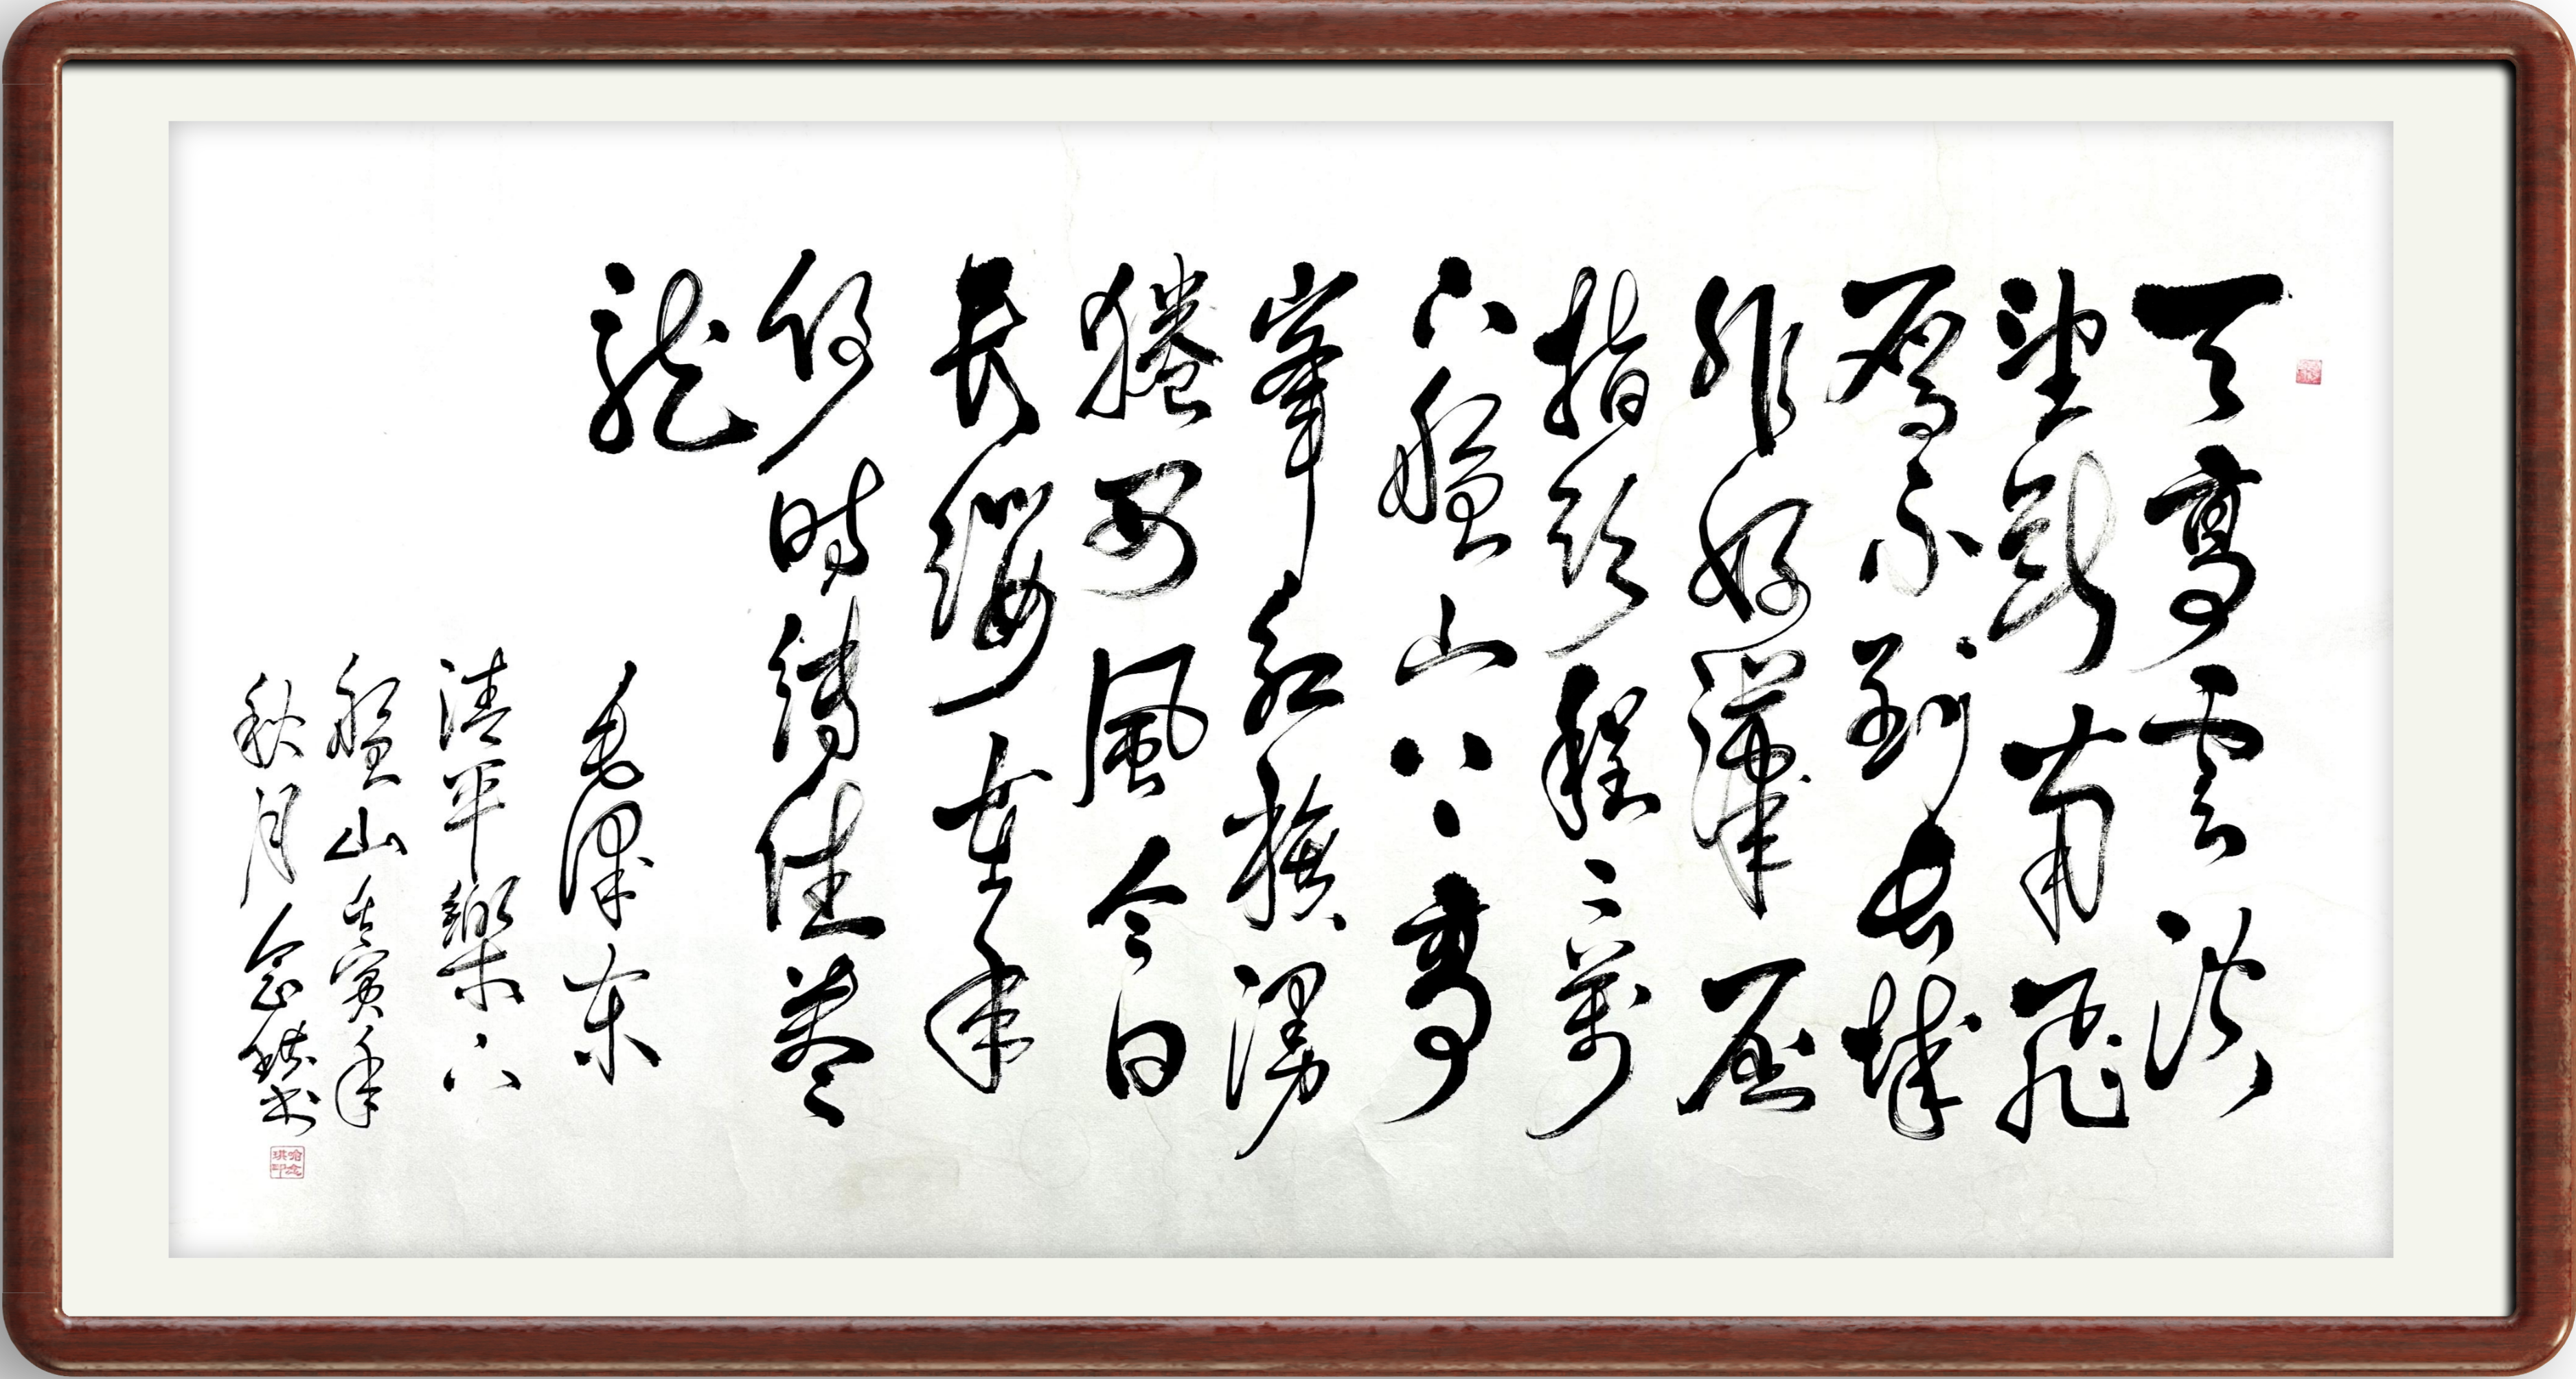 天高雲淡
望斷南飛
雁不到長城
非好漢屈
指程二萬
六盤山上高
峯紅旗漫
捲西風今日
長纓在手
何時縛住蒼
龍
毛澤東
清平樂六
盤山壬寅年
秋月念琪书
哈念琪印